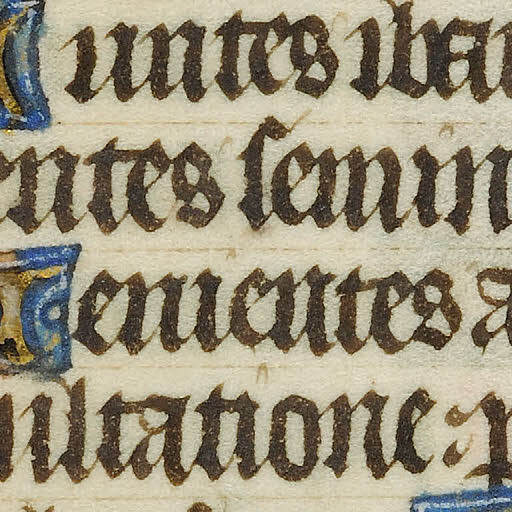 untes iba
entes semin
Uenientes a
ultatione: p